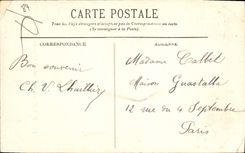 89
CARTE POSTALE
Tous les pays étrangers n'acceptent pas la Correspondance au recto
(Se renseigner à la Poste).
CORRESPONDANCE
ADRESSE
Bon souvenir
Ch. V. Lhuillier
Madame Calbet
Maison Guastalla
12 rue du 4 Septembre
Paris